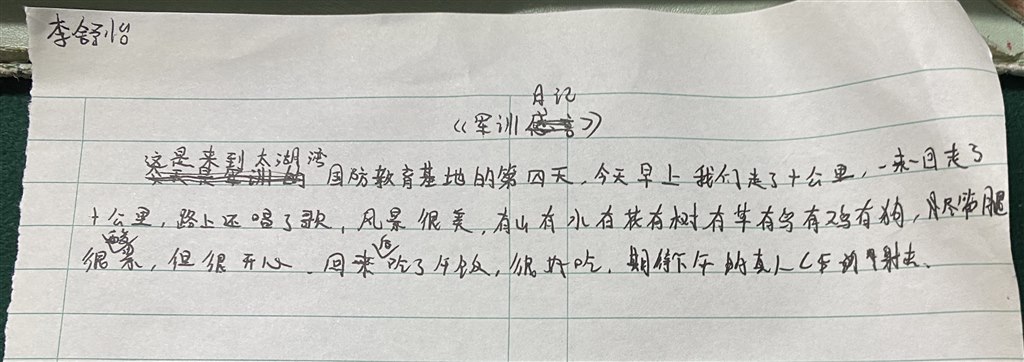 李舒怡
日记
《军训》
这是来到太湖湾
国防教育基地的第四天,今天早上我们走了十公里,一来一回走了
十公里,路上还唱了歌,风景很美,有山有水有花有树有草有鸟有鸡有狗,尽管腿
很酸,但很开心、回来后吃了午饭,很好吃,期待下午的真人CS